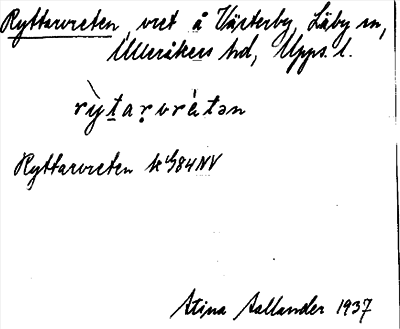 Ryttarvreten, vret å Västerby, Läby sn,
Ulleråkers hd, Upps. l.
rỳt̲aṛvrètən
Ryttarvreten
Stina Sallander 1937